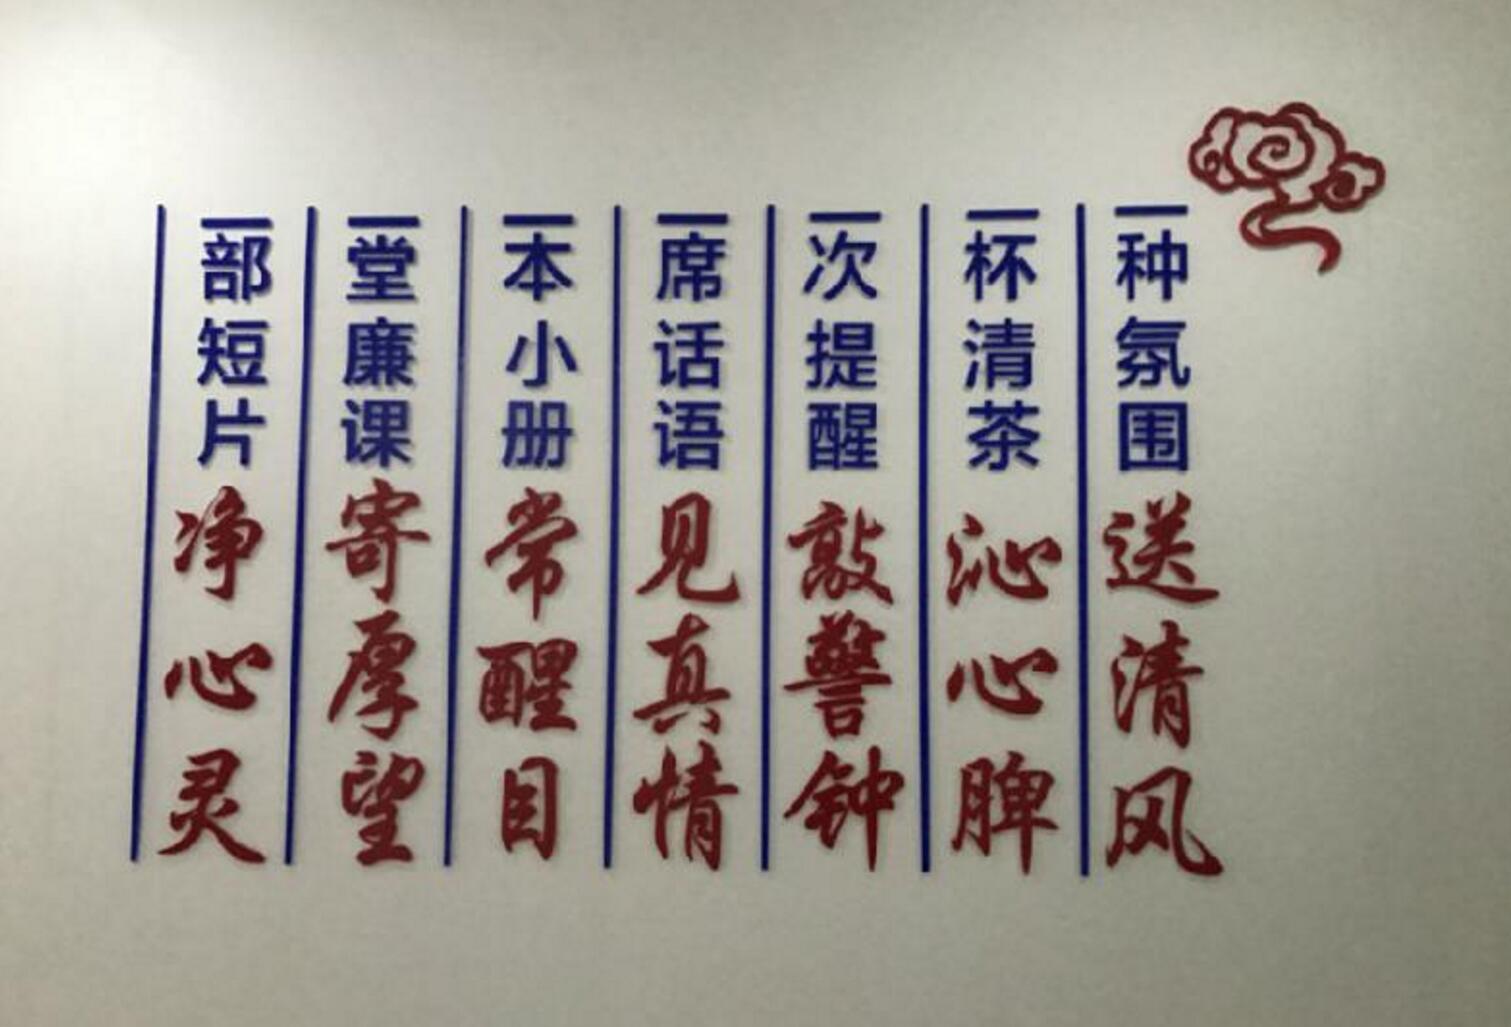 一种氛围送清风
一杯清茶沁心脾
一次提醒敲警钟
一席话语见真情
一本小册常醒目
一堂廉课寄厚望
一部短片净心灵